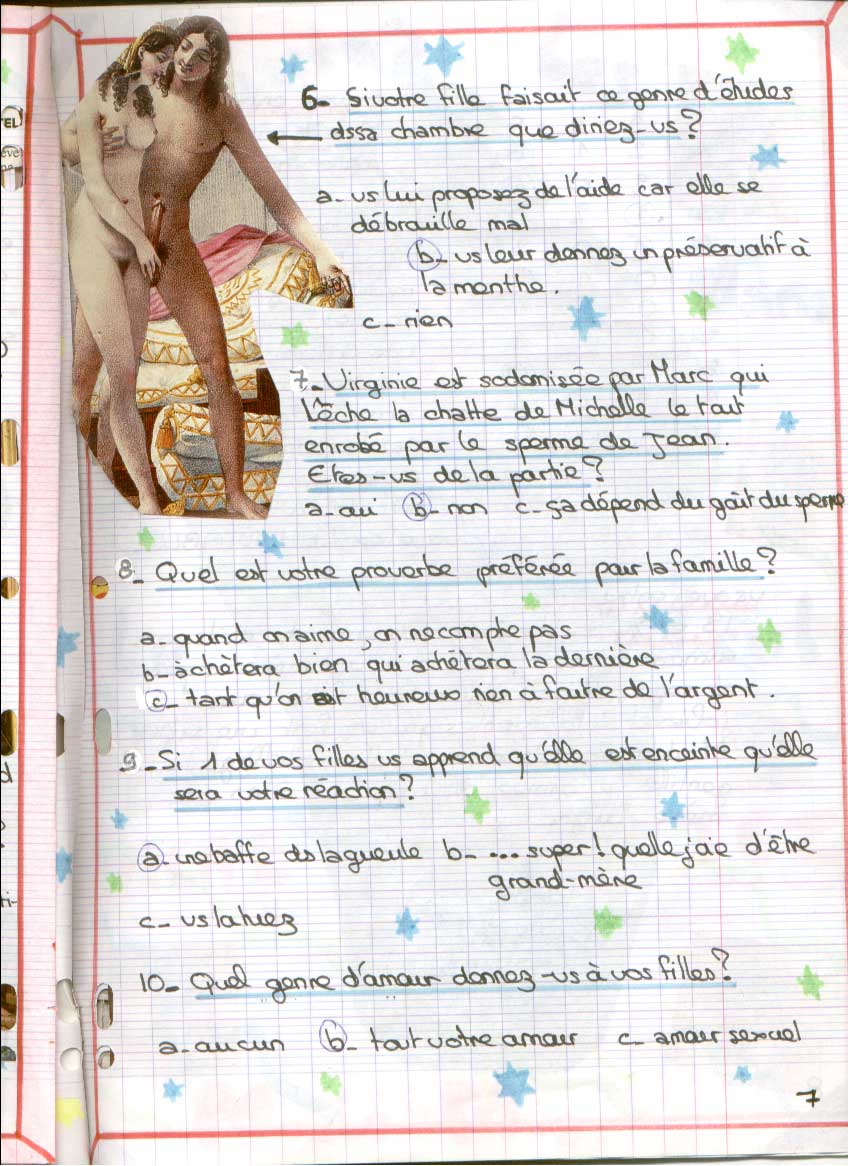 6- Si votre fille faisait ce genre d'études
ds sa chambre que diriez-vs?
a- vs lui proposez de l'aide car elle se
débrouille mal
b- vs leur donnez un préservatif à
la menthe.
c- rien
7- Virginie est sodomisée par Marc qui
lèche la chatte de Michelle le tout
enrobé par le sperme de Jean.
Etes-vs de la partie?
a- oui b- non c- ça dépend du goût du sperme
8- Quel est votre proverbe préférée pour la famille?
a- quand on aime, on ne compte pas
b- achètera bien qui achètera la dernière
c- tant qu'on est heureux rien à foutre de l'argent.
9- Si 1 de vos filles vs apprend qu'elle est enceinte qu'elle
sera votre réaction?
a- une baffe ds la gueule b- ... super! quelle joie d'être
grand-mère
c- vs la tuez
10- Quel genre d'amour donnez-vs à vos filles?
a- aucun b- tout votre amour c- amour sexuel
7